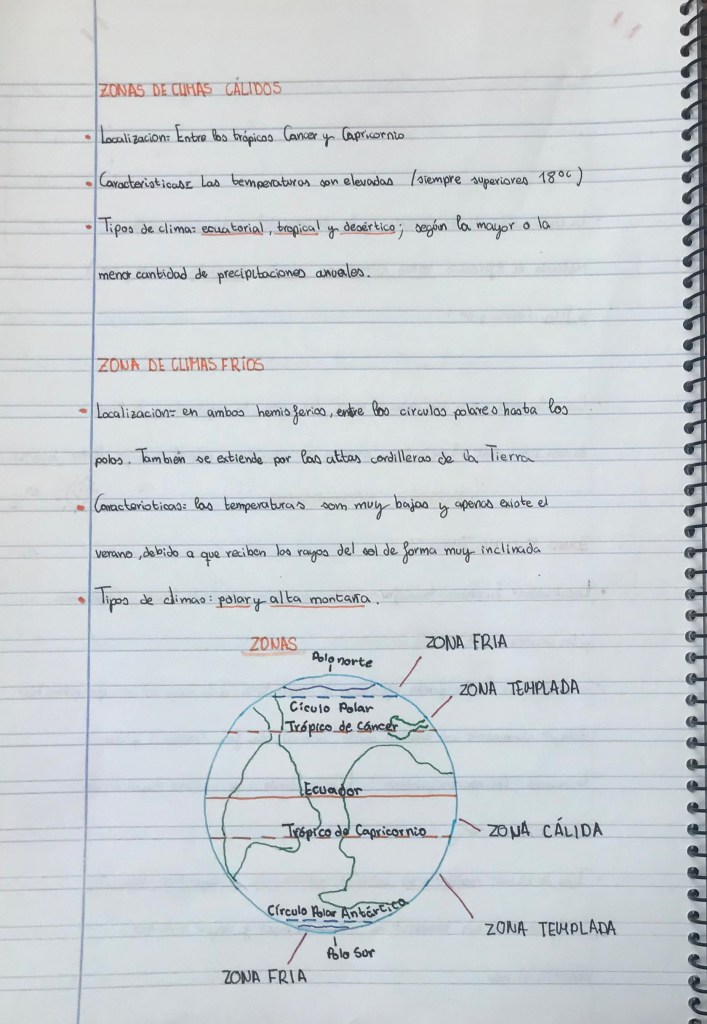 ZONAS DE CLIMAS CÁLIDOS
• Localizacion= Entre los trópicos Cancer y Capricornio
• Caracteristicas= Las temperaturas son elevadas (siempre superiores 18ºC)
• Tipos de clima: ecuatorial, tropical y desértico; según la mayor o la
menor cantidad de precipitaciones anuales.
ZONA DE CLIMAS FRÍOS
• Localizacion= en ambos hemisferios, entre los circulos polares hasta los
polos. También se extiende por las altas cordilleras de la Tierra
• Caracteristicas= las temperaturas son muy bajas y apenas existe el
verano, debido a que reciben los rayos del sol de forma muy inclinada
• Tipos de climas: polar y alta montaña.
ZONAS
ZONA FRIA
Polo norte
ZONA TEMPLADA
Cículo Polar
Trópico de Cáncer
Ecuador
Trópico de Capricornio
ZONA CÁLIDA
Círculo Polar Antártico
ZONA TEMPLADA
Polo Sur
ZONA FRIA